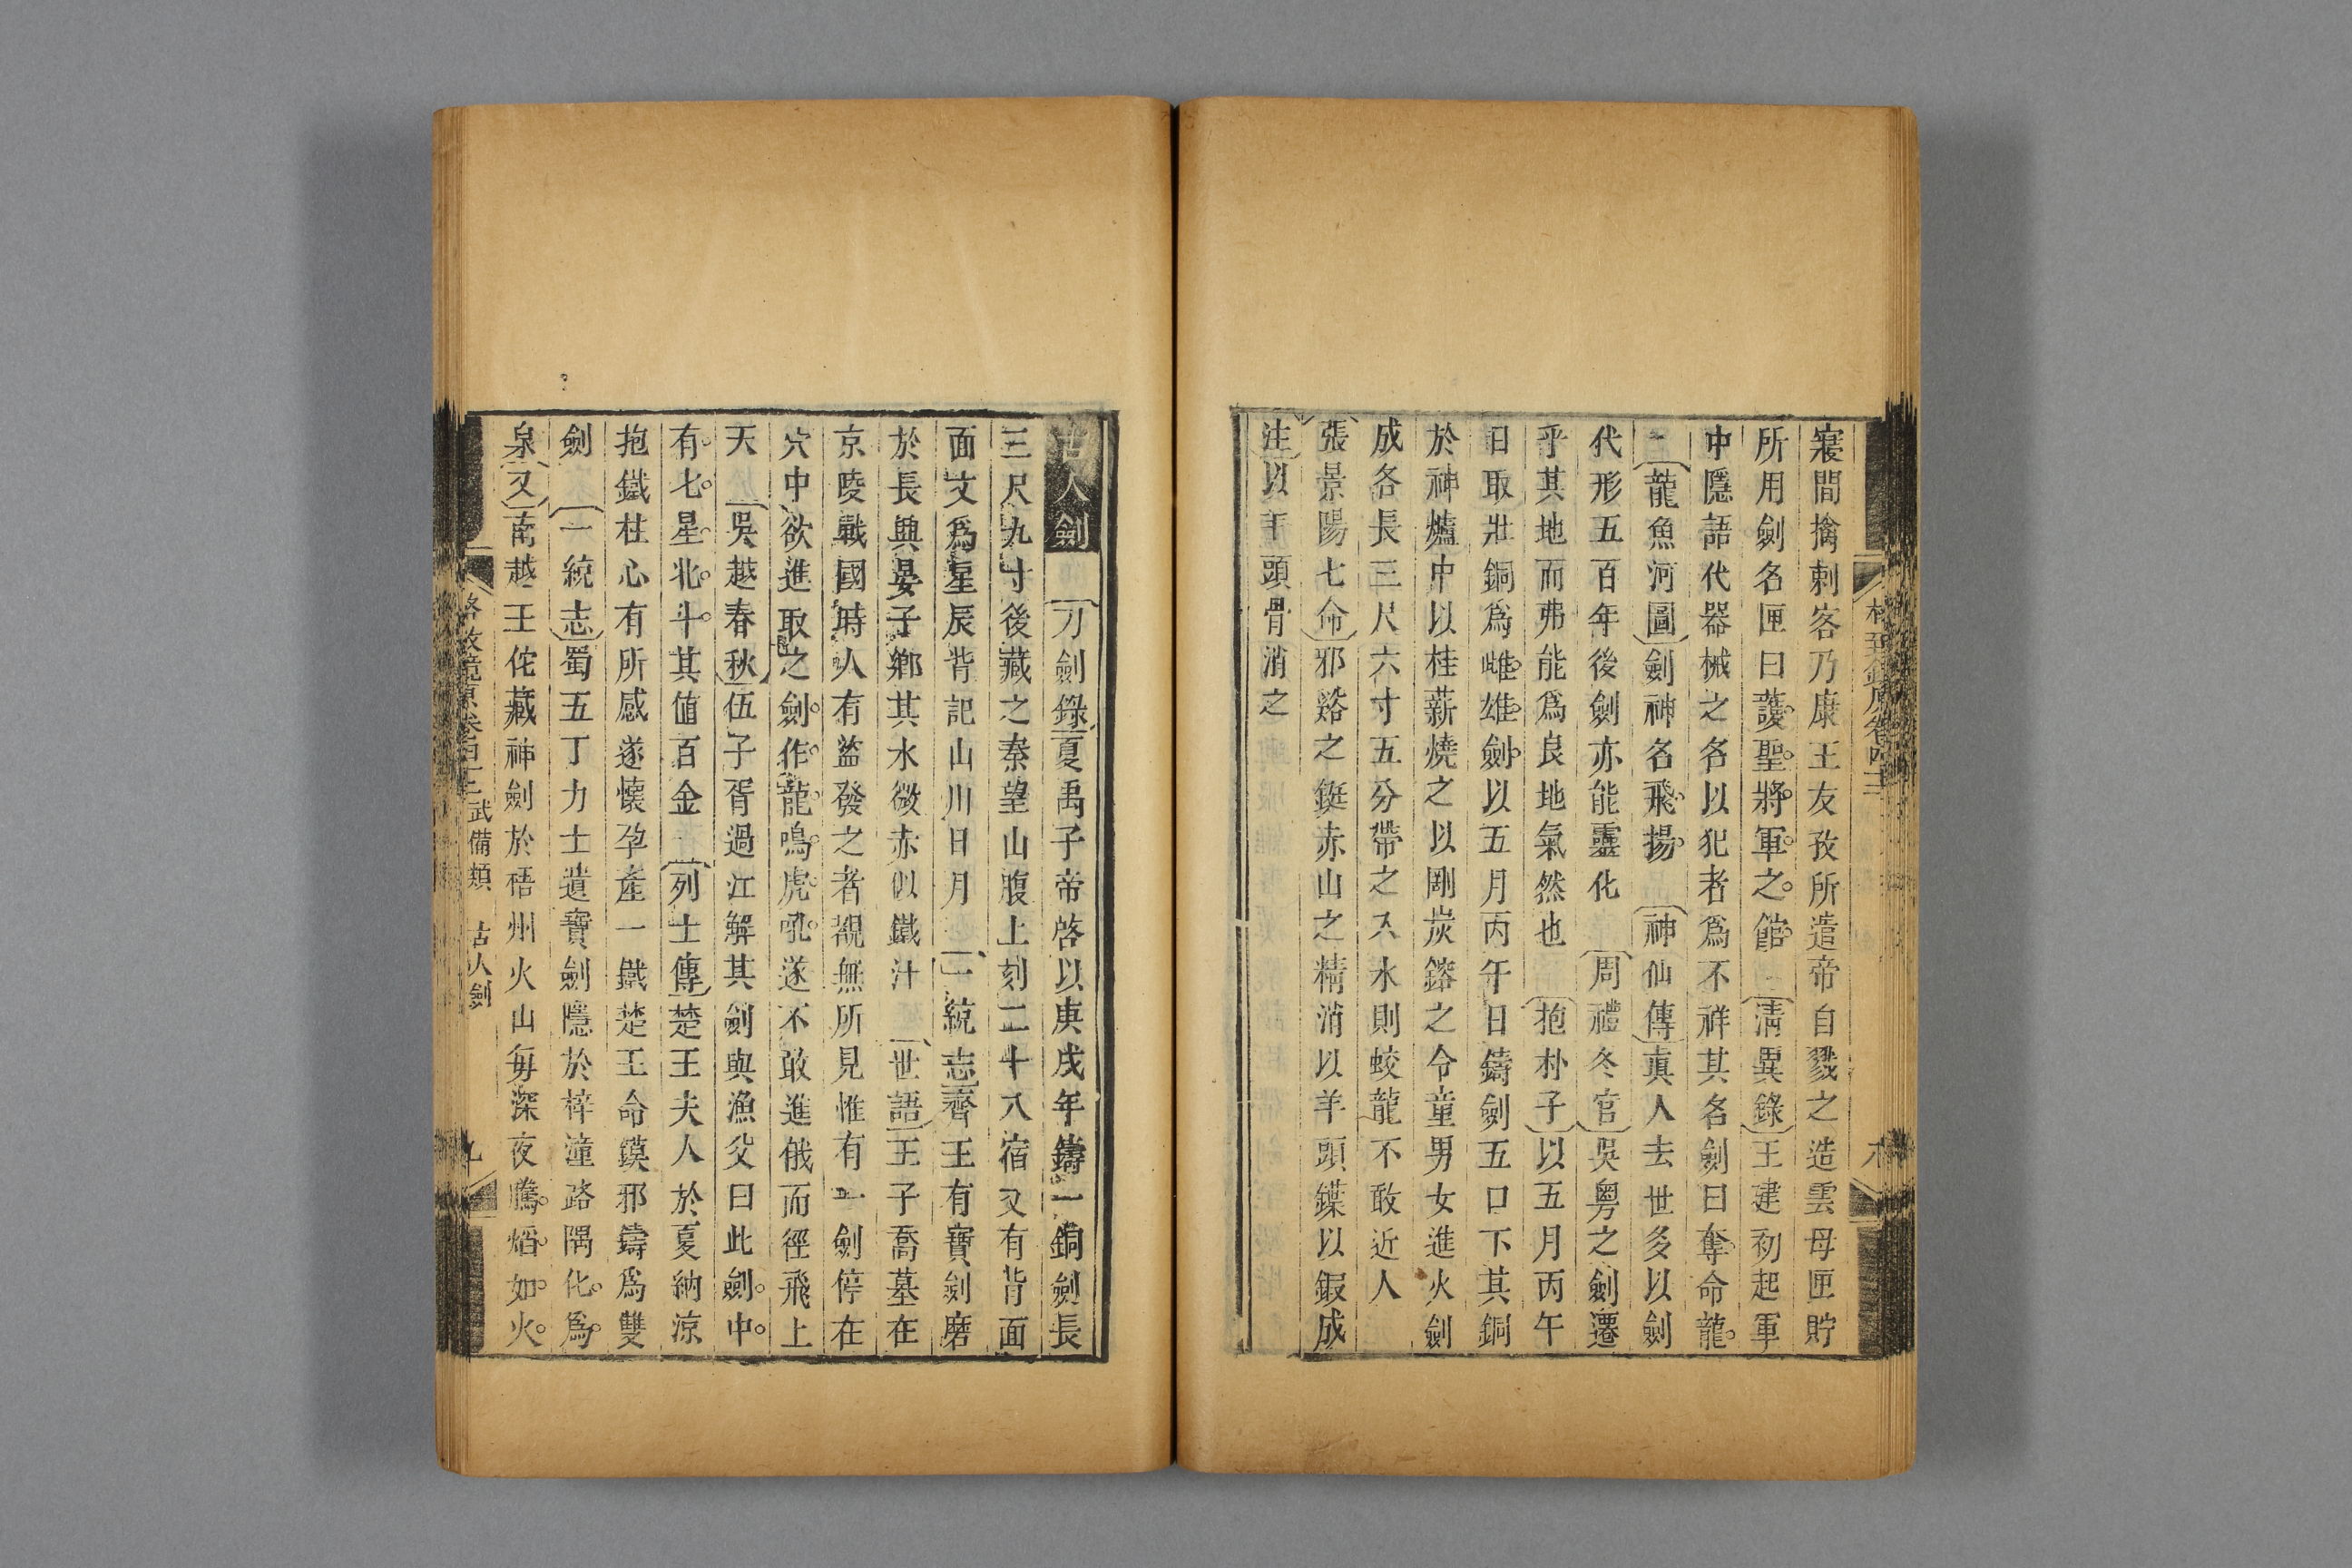 寢間擒刺客乃康王友孜所遣帝自戮之造雲母匣貯
所用劍名匣曰護聖將軍之館〔清異錄〕王建初起軍
中隱語代器械之名以犯者爲不祥其名劍曰奪命龍
〔龍魚河圖〕劍神名飛揚〔神仙傳〕眞人去世多以劍
代形五百年後劍亦能靈化〔周禮冬官〕吳粵之劍遷
乎其地而弗能爲良地氣然也〔抱朴子〕以五月丙午
日取壯銅爲雌雄劍以五月丙午日鑄劍五口下其銅
於神爐中以桂薪燒之以剛炭鎔之令童男女進火劍
成各長三尺六寸五分帶之入水則蛟龍不敢近人
〔張景陽七命〕邪谿之鋌赤山之精消以羊頭鏷以鍜成
〔注〕以羊頭骨消之
格致鏡原卷四十二
古人劍〔刀劍錄〕夏禹子帝啓以庚戌年鑄一銅劍長
三尺九寸後藏之秦望山腹上刻二十八宿又有背面
面文爲星辰背記山川日月〔一統志〕齊王有寶劍磨
於長興晏子鄉其水微赤似鐵汁〔世語〕王子喬墓在
京陵戰國時人有盜發之者覩無所見惟有一劍停在
穴中欲進取之劍作龍鳴虎吼遂不敢進俄而徑飛上
天〔吳越春秋〕伍子胥過江解其劍與漁父曰此劍中
有七星北斗其値百金〔列士傳〕楚王夫人於夏納涼
抱鐵柱心有所感遂懷孕產一鐵楚王命鏌邪鑄爲雙
劍〔一統志〕蜀五丁力士遺寶劍隱於梓潼路隅化爲
泉〔又〕南越王佗藏神劍於梧州火山每深夜騰焰如火
格致鏡原卷四十二 武備類 古人劍 九